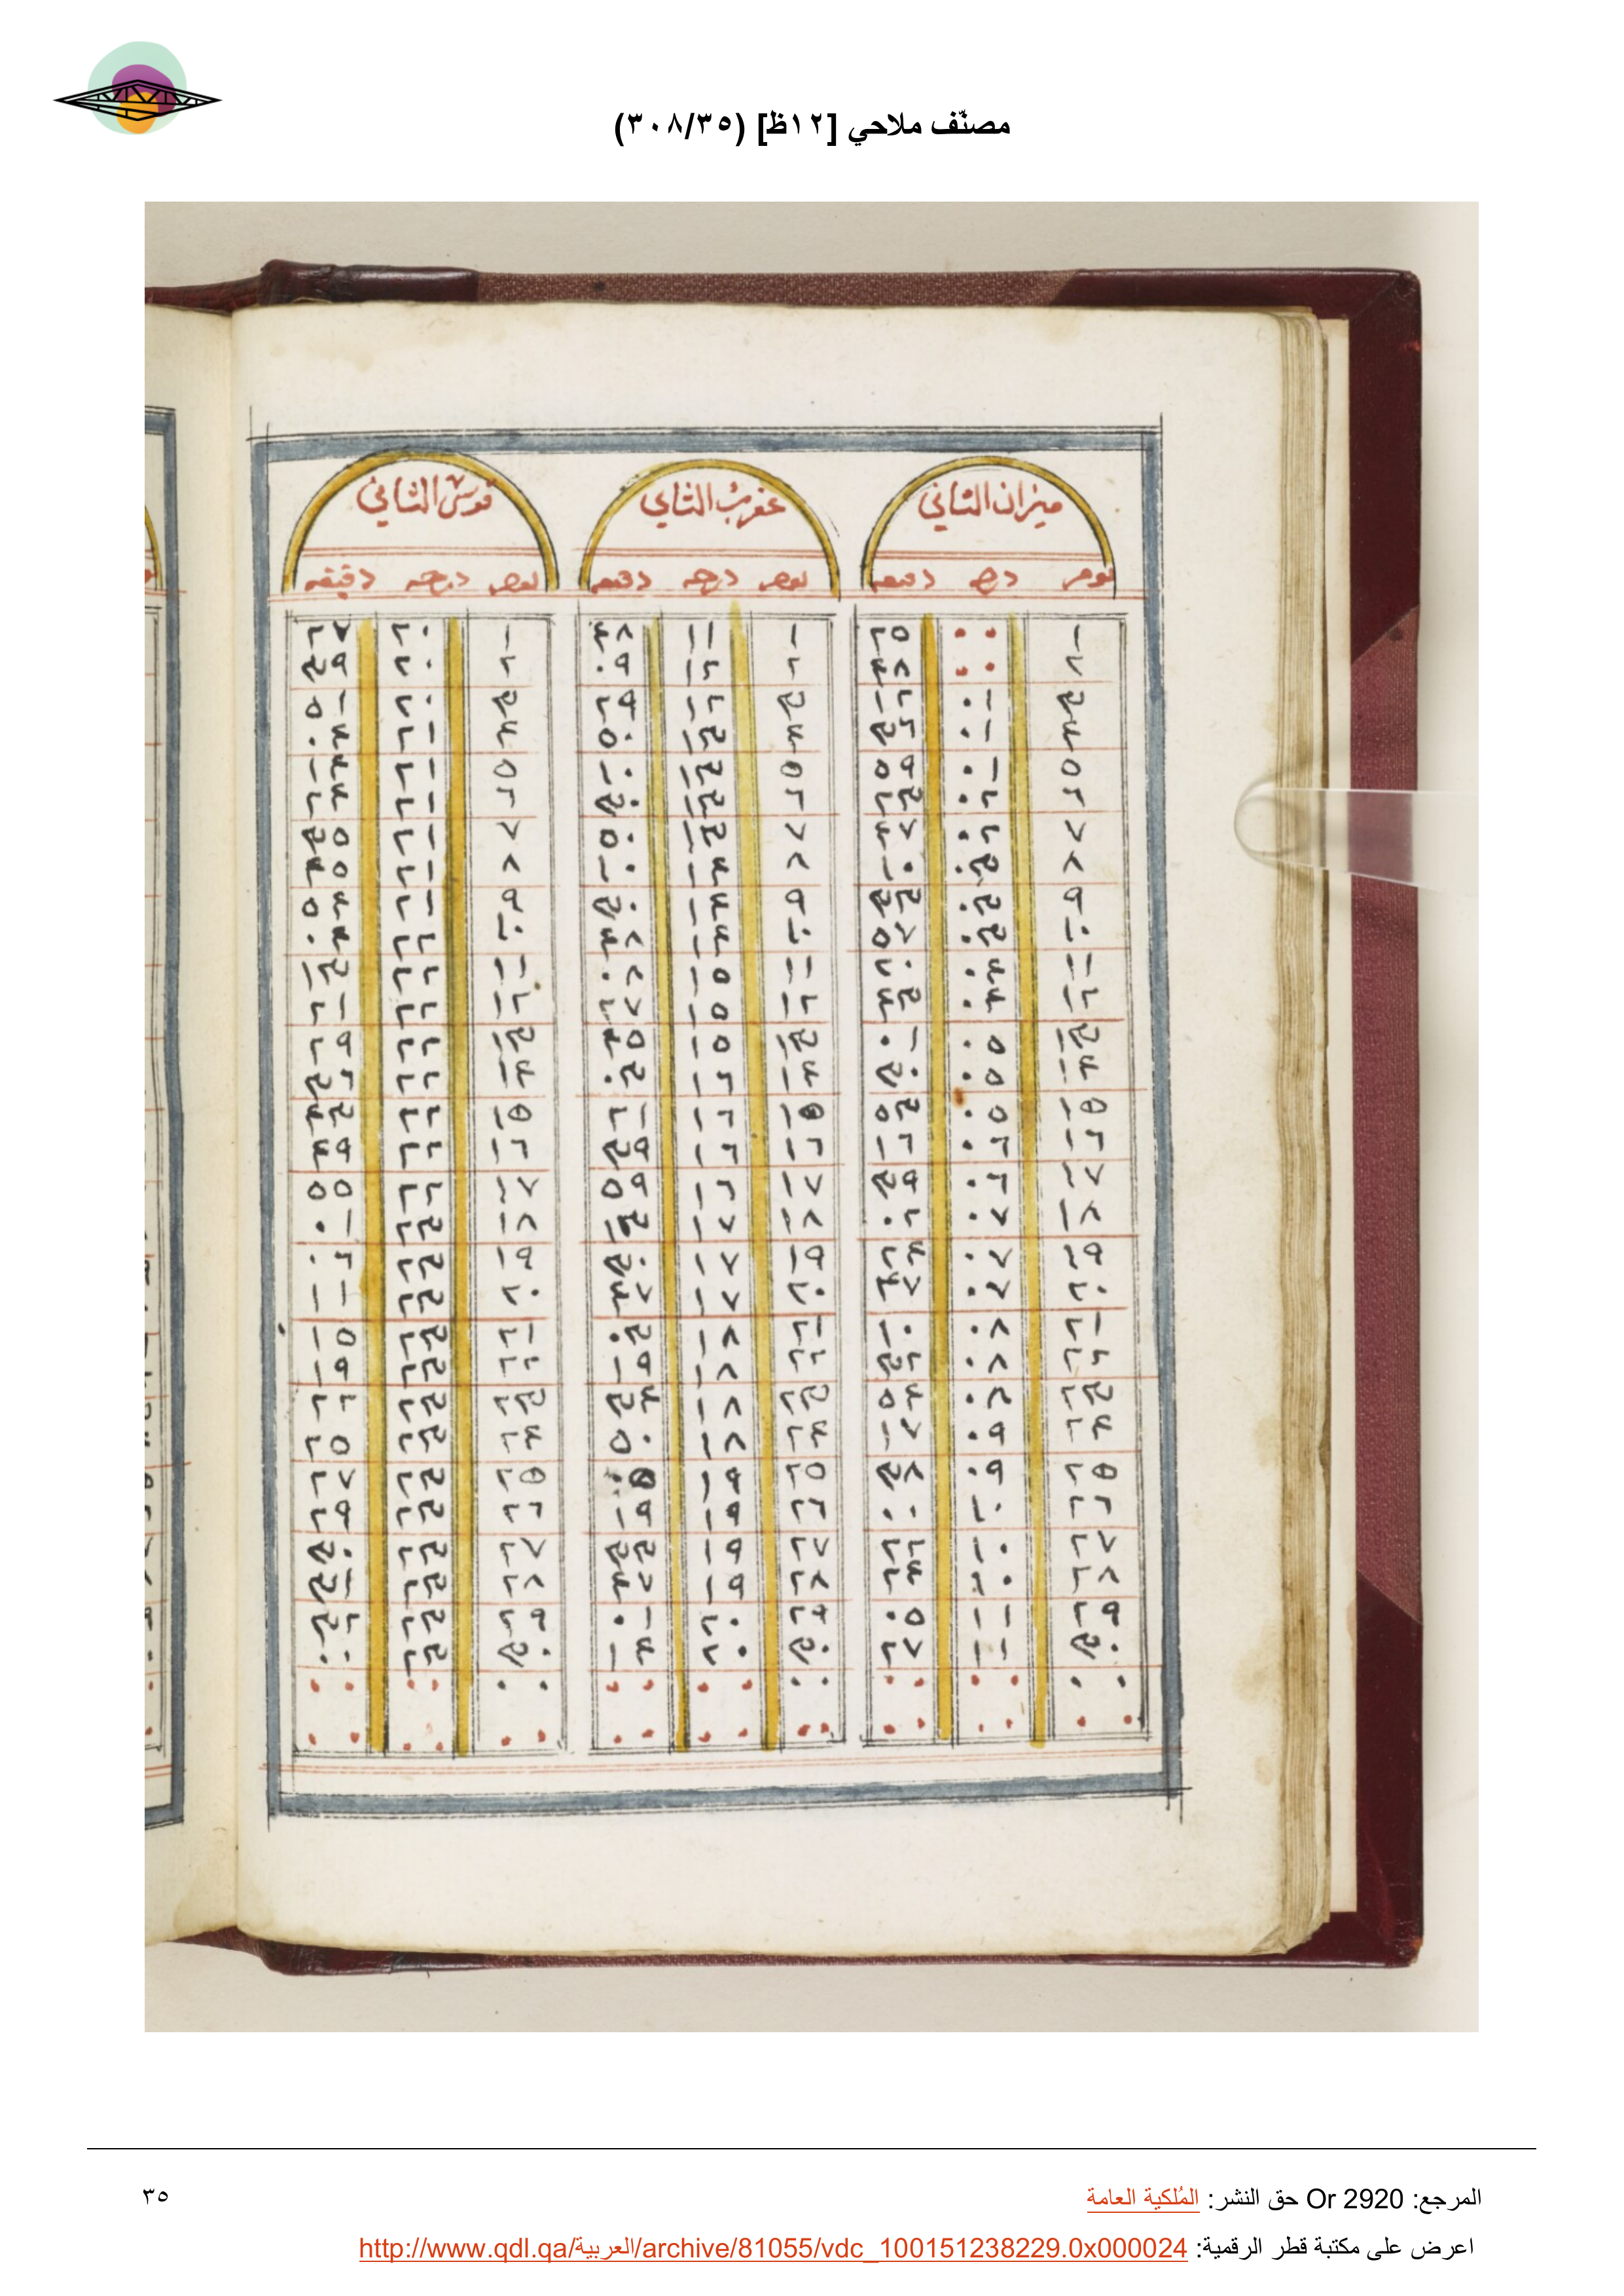 مصنّف ملاحي [١٢ظ] (٣٠٨/٣٥)
ميزان الثاني عقرب الثاني قوس الثاني
يوم درجه دقيقه يوم درجه دقيقه يوم درجه دقيقه
١ ٠٠ ٢٥ ١ ١١ ٤٨ ١ ٢٠ ٢٧
٢ ٠٠ ٤٨ ٢ ١٢ ٠٩ ٢ ٢٠ ٣٩
٣ ٠١ ١٢ ٣ ١٢ ٢٩ ٣ ٢٠ ٥١
٤ ٠١ ٣٦ ٤ ١٣ ٥٠ ٤ ٢١ ٠٤
٥ ٠١ ٥٩ ٥ ١٣ ١٠ ٥ ٢١ ١٤
٦ ٠٢ ٢٣ ٦ ١٣ ٣٠ ٦ ٢١ ٢٤
٧ ٠٢ ٤٧ ٧ ١٣ ٥٠ ٧ ٢١ ٣٥
٨ ٠٣ ١٠ ٨ ١٤ ١٠ ٨ ٢١ ٤٥
٩ ٠٣ ٣٣ ٩ ١٤ ٣٠ ٩ ٢١ ٥٤
١٠ ٠٣ ٥٧ ١٠ ١٤ ٤٨ ١٠ ٢٢ ٠٤
١١ ٠٤ ٢٠ ١١ ١٥ ٠٨ ١١ ٢٢ ١٣
١٢ ٠٤ ٤٣ ١٢ ١٥ ٢٧ ١٢ ٢٢ ٢١
١٣ ٠٥ ٠١ ١٣ ١٥ ٤٥ ١٣ ٢٢ ٢٩
١٤ ٠٥ ٣٠ ١٤ ١٦ ٠٣ ١٤ ٢٢ ٣٦
١٥ ٠٥ ٥٣ ١٥ ١٦ ٢١ ١٥ ٢٢ ٤٣
١٦ ٠٦ ١٦ ١٦ ١٦ ٣٩ ١٦ ٢٢ ٤٩
١٧ ٠٦ ٣٩ ١٧ ١٦ ٥٩ ١٧ ٢٢ ٥٥
١٨ ٠٧ ٠٢ ١٨ ١٧ ١٣ ١٨ ٢٣ ٠١
١٩ ٠٧ ٢٤ ١٩ ١٧ ٣٠ ١٩ ٢٣ ٠٦
٢٠ ٠٧ ٤٧ ٢٠ ١٧ ٤٧ ٢٠ ٢٣ ١١
٢١ ٠٨ ١٠ ٢١ ١٨ ٠٣ ٢١ ٢٣ ١٥
٢٢ ٠٨ ٣٢ ٢٢ ١٨ ١٩ ٢٢ ٢٣ ١٩
٢٣ ٠٨ ٥٤ ٢٣ ١٨ ٣٤ ٢٣ ٢٣ ٢٢
٢٤ ٠٩ ١٧ ٢٤ ١٨ ٥٠ ٢٤ ٢٣ ٢٥
٢٥ ٠٩ ٣٨ ٢٥ ١٩ ٠٥ ٢٥ ٢٣ ٢٧
٢٦ ١٠ ٠٠ ٢٦ ١٩ ١٩ ٢٦ ٢٣ ٢٩
٢٧ ١٠ ٢٢ ٢٧ ١٩ ٣٣ ٢٧ ٢٣ ٣٠
٢٨ ١٠ ٢٤ ٢٨ ١٩ ٤٧ ٢٨ ٢٣ ٣١
٢٩ ١١ ٠٥ ٢٩ ٢٠ ٠١ ٢٩ ٢٣ ٣٢
٣٠ ١١ ٢٧ ٣٠ ٢٠ ١٤ ٣٠ ٢٣ ٠٠
٠٠ ٠٠ ٠٠ ٠٠ ٠٠ ٠٠ ٠٠ ٠٠ ٠٠
٠٠ ٠٠ ٠٠ ٠٠ ٠٠ ٠٠ ٠٠ ٠٠ ٠٠
المرجع: Or 2920 حق النشر: المُلكية العامة
٣٥
اعرض على مكتبة قطر الرقمية: http://www.qdl.qa/العربية/archive/81055/vdc_100151238229.0x000024